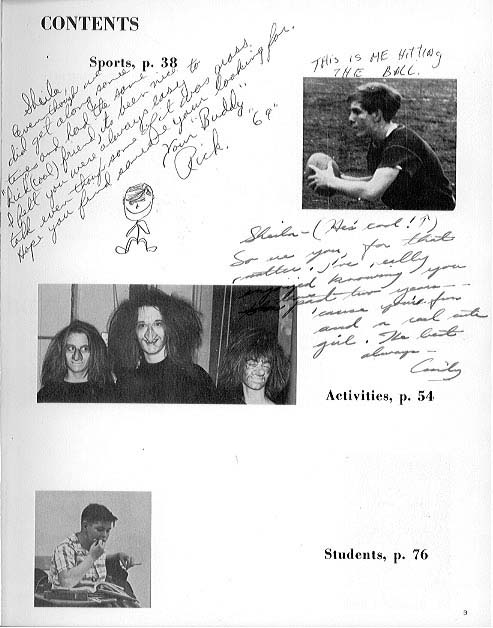 CONTENTS
Sports, p. 38
THIS IS ME HITTING
THE BALL.
Sheila,
Even though we
did get along some
times and had the same
friend, its been nice to
I felt you were always easy to
talk even though some of it was gross.
Hope you find someone your looking for.
Your Buddy
Rick. "69"
Sheila - (He's cool! ↑)
So are you, for that
matter. I've really
knowing you
past two years -
'cause you're fun
and a real cute
girl. The best
always -
Activities, p. 54
Students, p. 76
9